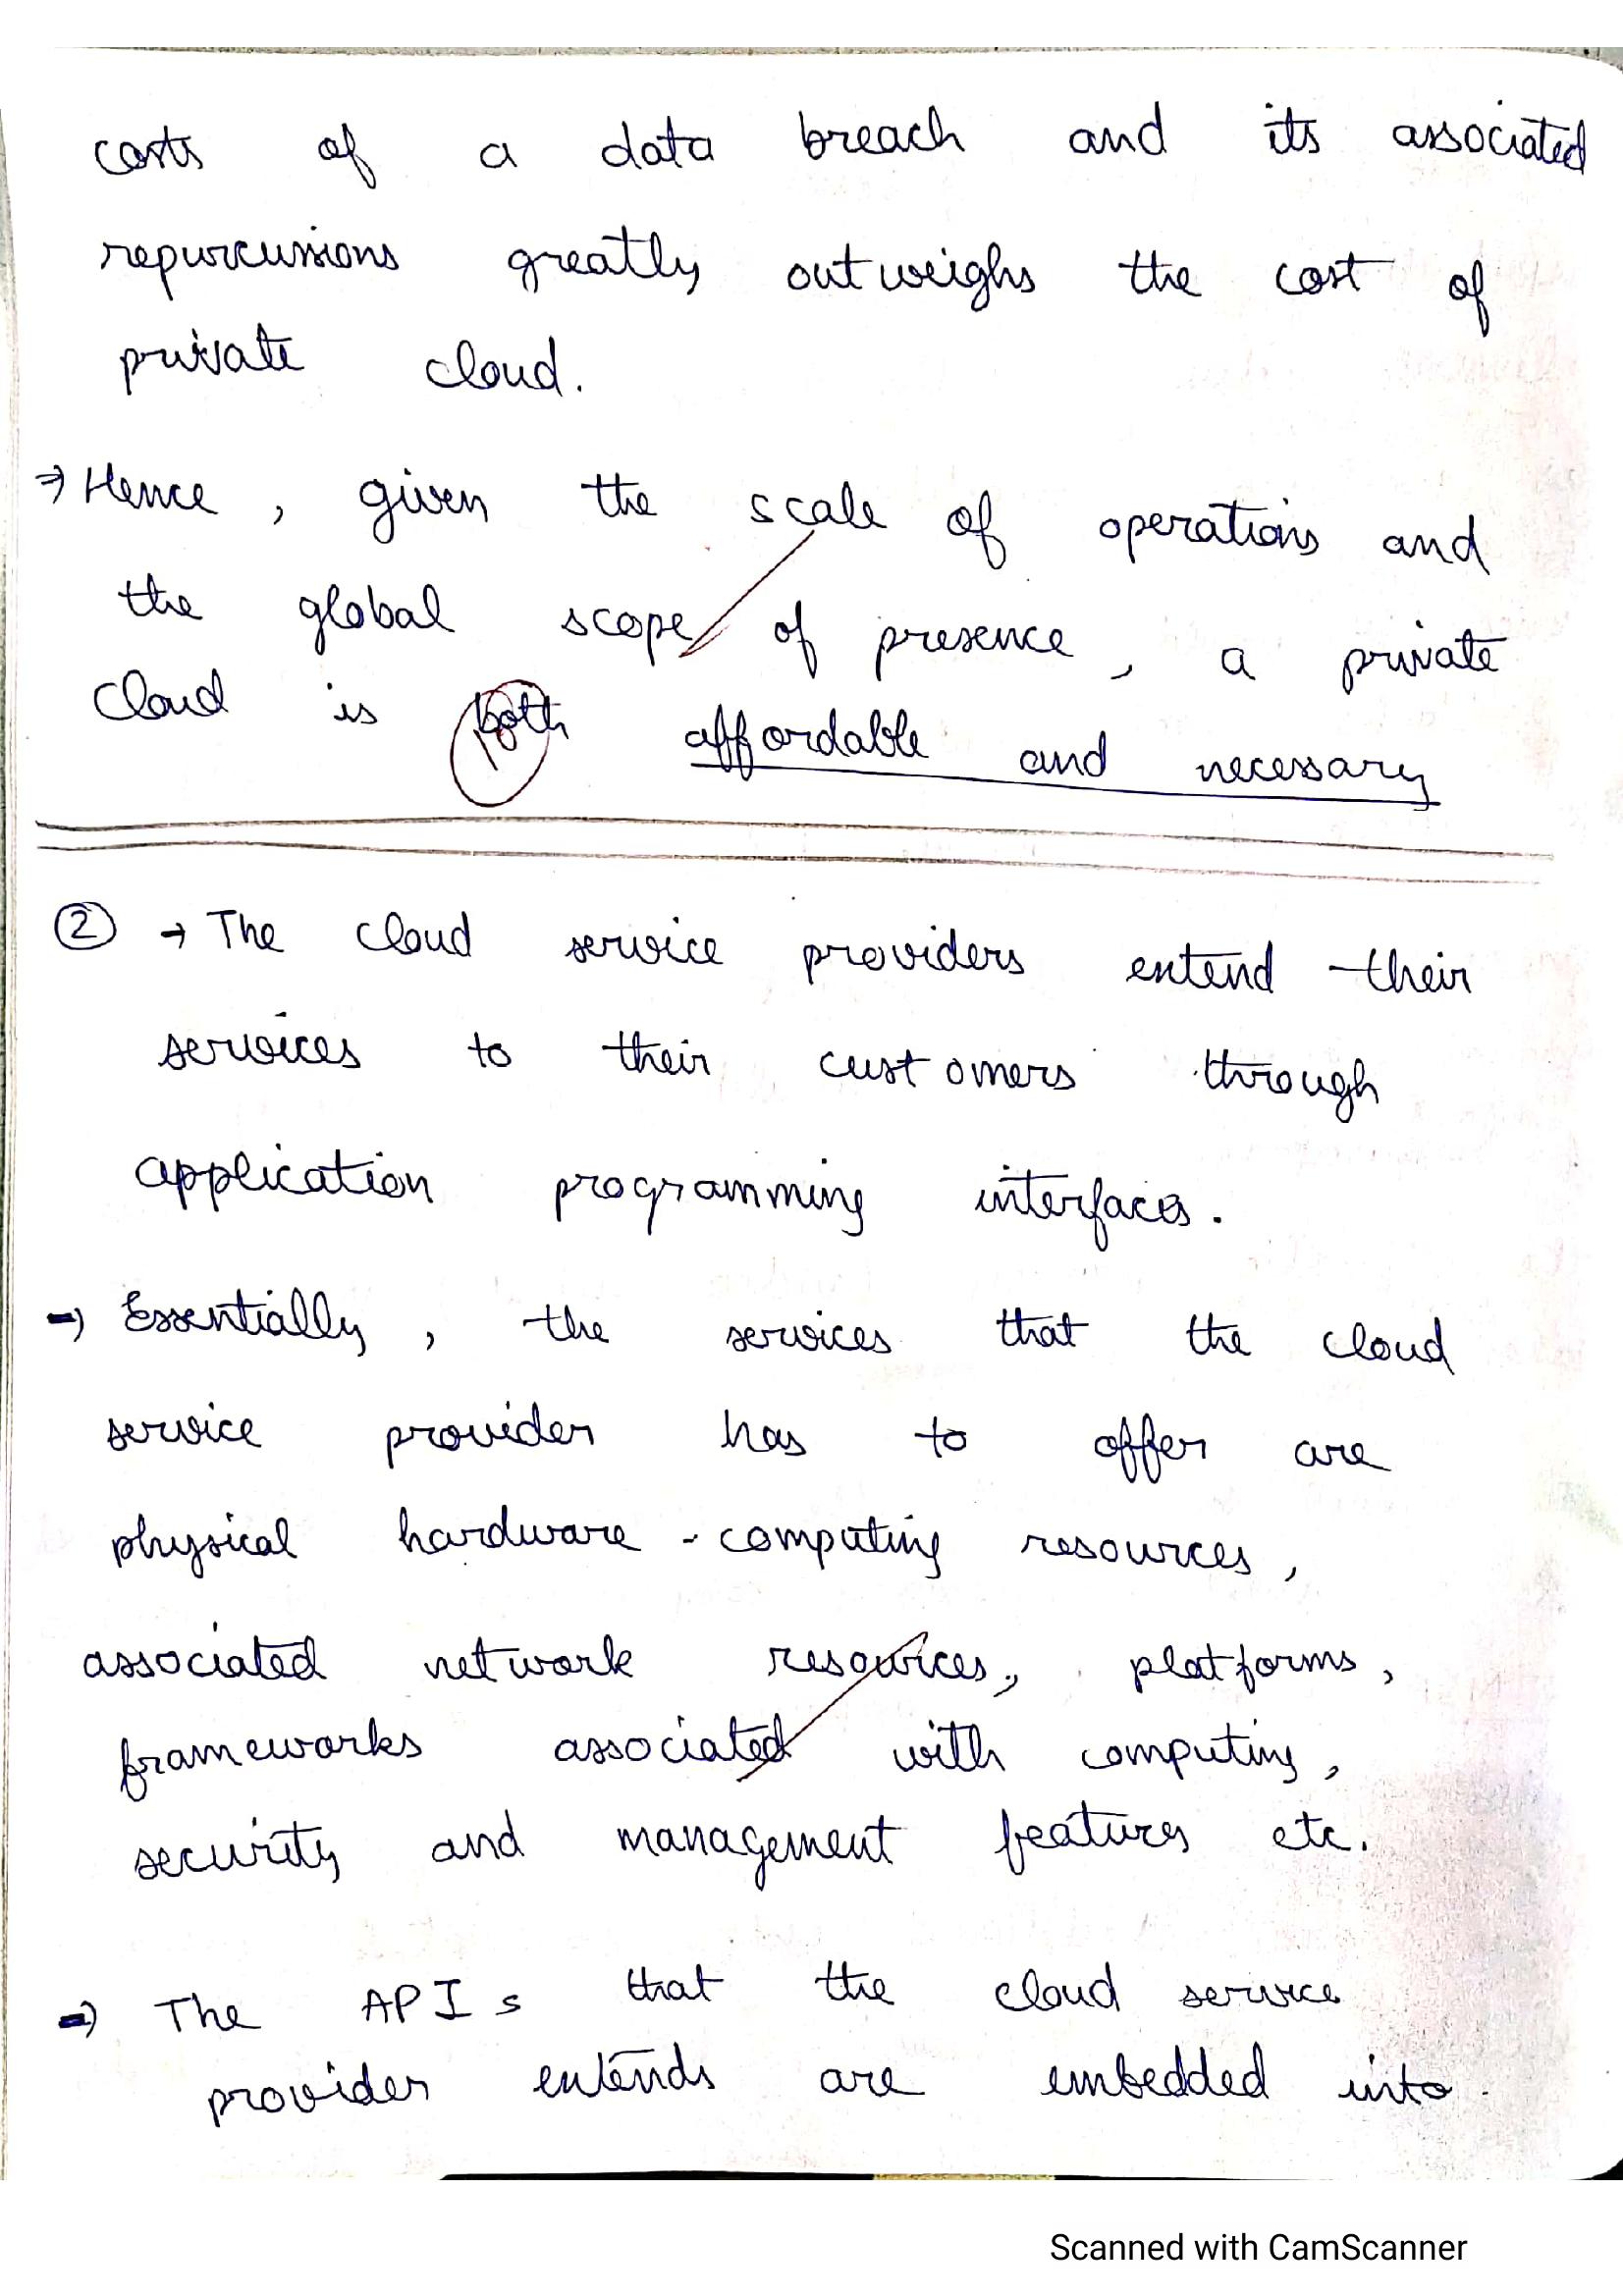 costs of a data breach and its associated
repurcussions greatly outweighs the cost of
private cloud.
⇒ Hence, given the scale of operations and
the global scope of presence, a private
cloud is both affordable and necessary
② → The cloud service providers extend their
services to their customers through
application programming interfaces.
⇒ Essentially, the services that the cloud
service provider has to offer are
physical hardware - computing resources,
associated network resources, platforms,
frameworks associated with computing,
security and management features etc.
⇒ The APIs that the cloud service
provider extends are embedded into
Scanned with CamScanner